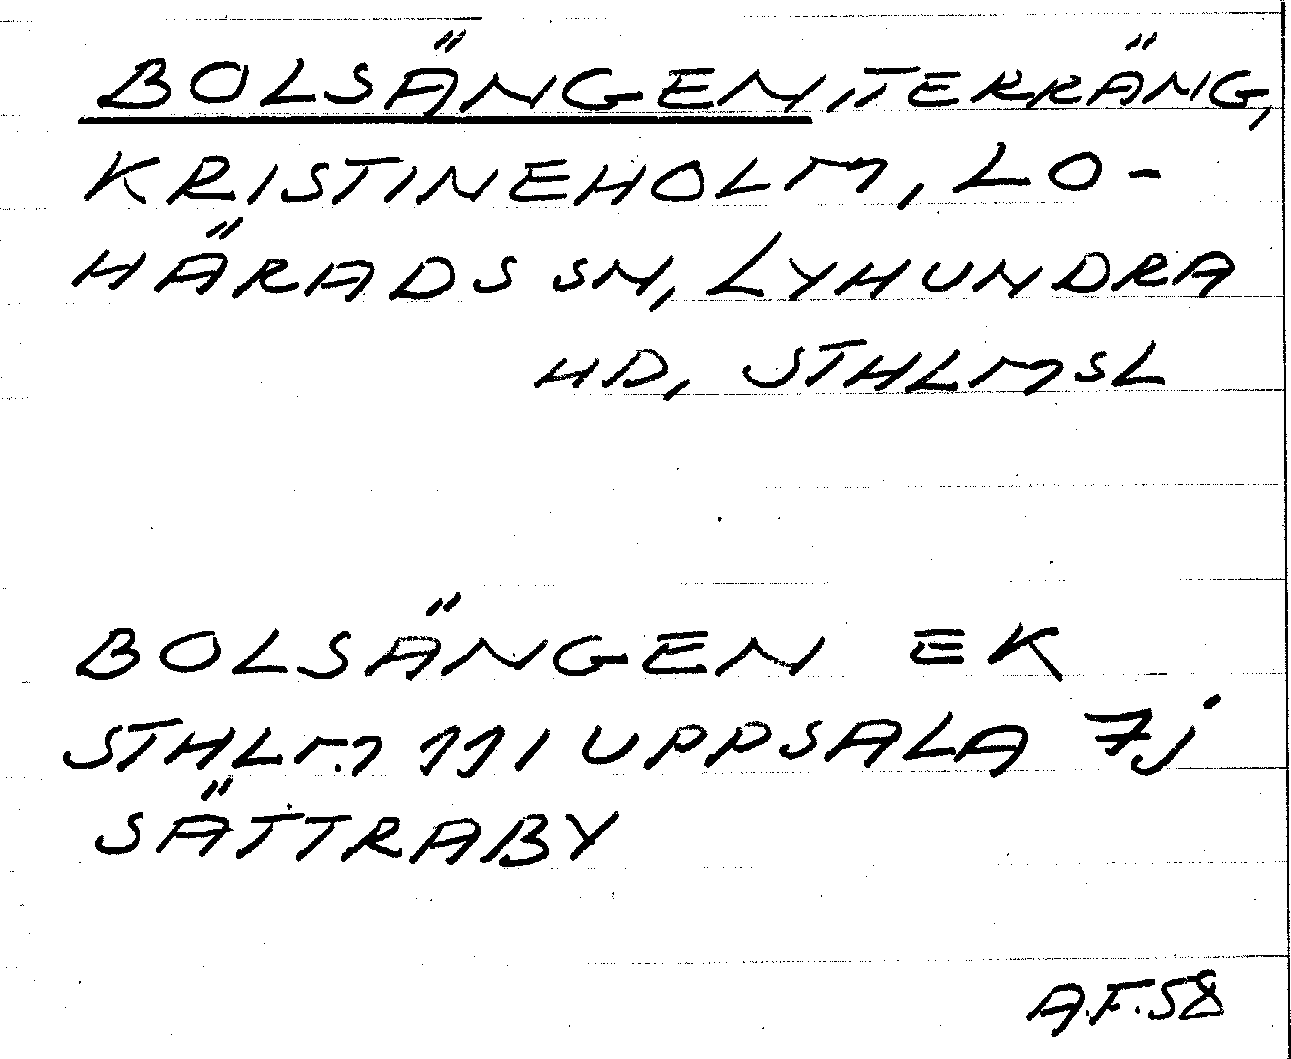 BOLSÄNGEN, TERRÄNG,
KRISTINEHOLM, LO-
HÄRADS SN, LYHUNDRA
HD, STHLMSL
BOLSÄNGEN EK
STHLM 111 UPPSALA 7j
SÄTTRABY
A.F.58